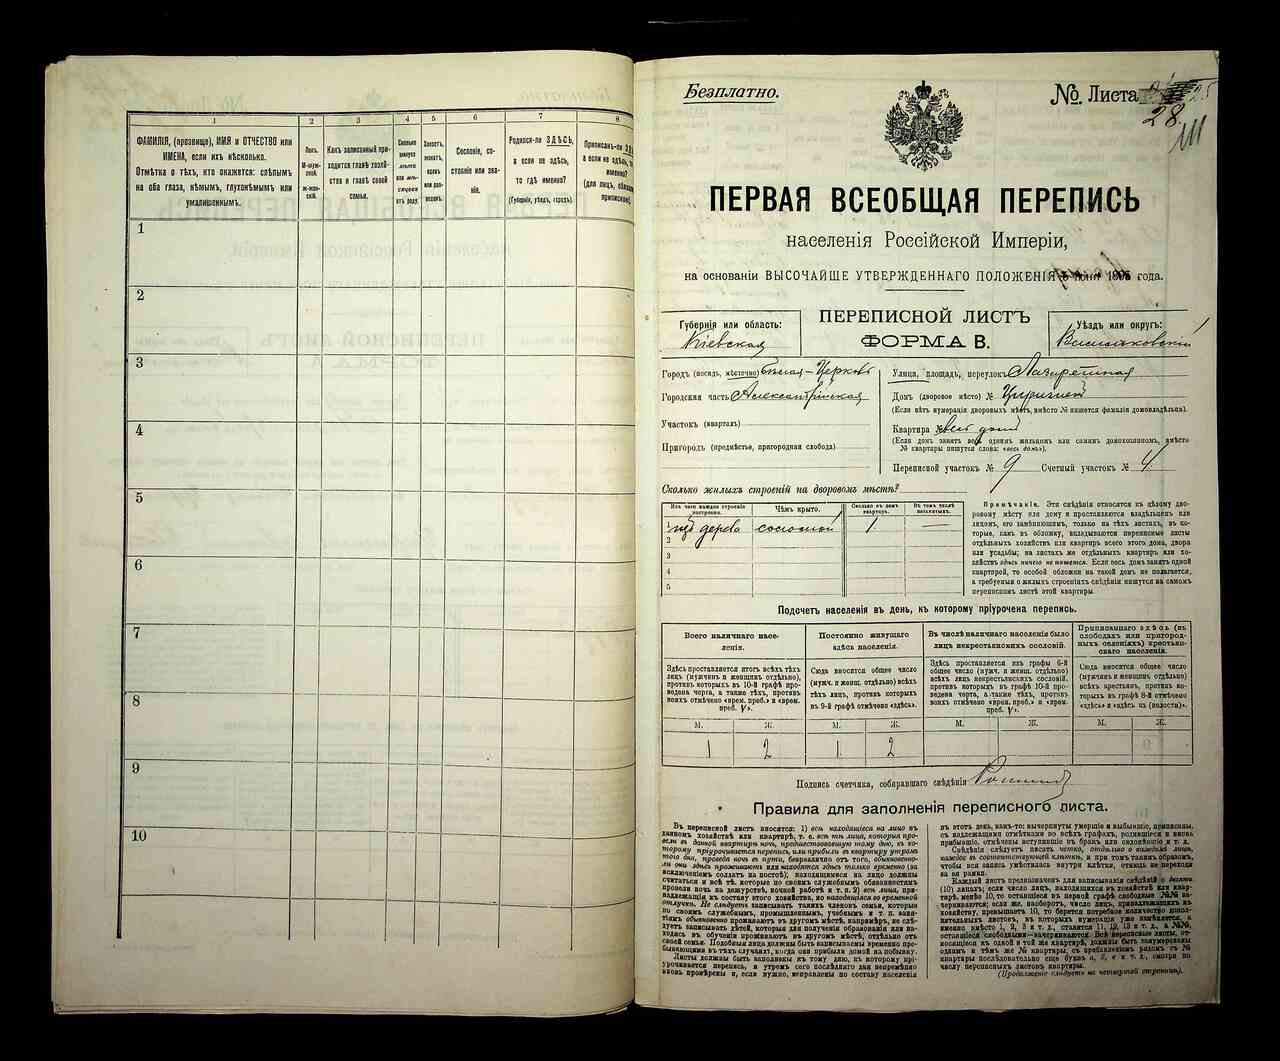 1
2
3
4
5
6
7
8
ФАМИЛІЯ, (прозвище), ИМЯ и ОТЧЕСТВО или
ИМЕНА, если ихъ нѣсколько.
Отмѣтка о тѣхъ, кто окажется: слѣпымъ
на оба глаза, нѣмымъ, глухонѣмымъ или
умалишеннымъ.
Полъ.
М-муж-
ской.
Ж-жен-
скій.
Какъ записанный при-
ходится главѣ хозяй-
ства и главѣ своей
семьи.
Сколько
минуло
лѣтъ
или мѣ-
сяцевъ
отъ роду.
Холостъ,
женатъ,
вдовъ
или раз-
веденъ.
Сословіе, со-
стояніе или зва-
ніе.
Родился-ли ЗДѢСЬ,
а если не здѣсь,
то гдѣ именно?
(Губернія, уѣздъ, городъ).
Приписанъ-ли
а если не здѣсь,
именно?
(для лицъ,
1
2
3
4
5
6
7
8
9
10
Безплатно.
№ Листа
28
ПЕРВАЯ ВСЕОБЩАЯ ПЕРЕПИСЬ
населенія Россійской Имперіи,
на основаніи ВЫСОЧАЙШЕ УТВЕРЖДЕННАГО ПОЛОЖЕНІЯ года.
ПЕРЕПИСНОЙ ЛИСТЪ
ФОРМА В.
Губернія или область:
Кіевская
Уѣздъ или округъ:
Васильковскій
Городъ (посадъ, мѣстечко) Бѣлая-Церковь
Городская часть Александрійская
Участокъ (кварталъ)
Пригородъ (предмѣстье, пригородная слобода)
Улица, площадь, переулокъ Лазаретная
Домъ (дворовое мѣсто) №
(Если нѣтъ нумераціи дворовыхъ мѣстъ, вмѣсто № пишется фамилія домовладѣльца).
Квартира № весь домъ
(Если домъ занятъ весь однимъ жильцомъ или самимъ домохозяиномъ, вмѣсто
№ квартиры пишутся слова: «весь домъ»).
Переписной участокъ № 9 Счетный участокъ № 4
Сколько жилыхъ строеній на дворовомъ мѣстѣ?
Изъ чего каждое строеніе
построено.
Чѣмъ крыто.
Сколько въ немъ
квартиръ.
Въ томъ числѣ
незанятыхъ.
1 изъ дерева соломой 1 —
2
3
4
5
Примѣчаніе. Эти свѣдѣнія относятся къ цѣлому дво-
ровому мѣсту или дому и проставляются владѣльцемъ или
лицомъ, его замѣняющимъ, только на тѣхъ листахъ, въ ко-
торые, какъ въ обложку, вкладываются переписные листы
отдѣльныхъ хозяйствъ или квартиръ всего этого дома, двора
или усадьбы; на листахъ же отдѣльныхъ квартиръ или хо-
зяйствъ здѣсь ничего не пишется. Если весь домъ занятъ одной
квартирой, то особой обложки на такой домъ не полагается,
а требуемыя о жилыхъ строеніяхъ свѣдѣнія пишутся на самомъ
переписномъ листѣ этой квартиры.
Подсчетъ населенія въ день, къ которому пріурочена перепись.
Всего наличнаго насе-
ленія.
Постоянно живущаго
здѣсь населенія.
Въ числѣ наличнаго населенія было
лицъ некрестьянскихъ сословій.
Приписаннаго здѣсь (въ
слободахъ или пригород-
ныхъ селеніяхъ) крестьян-
скаго населенія.
Здѣсь проставляется итогъ всѣхъ тѣхъ
лицъ (мужчин и женщинъ отдѣльно),
противъ которыхъ въ 10-й графѣ про-
ведена черта, а также тѣхъ, противъ
коихъ отмѣчено «врем. преб.» и «врем.
преб. V».
Сюда вносится общее число
(муж. и женщ. отдѣльно) всѣхъ
тѣхъ лицъ, противъ которыхъ
въ 9-й графѣ отмѣчено «здѣсь».
Здѣсь проставляется изъ графы 6-й
общее число (муж. и женщ. отдѣльно)
всѣхъ некрестьянскихъ сословій,
противъ которыхъ въ графѣ 10-й про-
ведена черта, а также тѣхъ, противъ
коихъ отмѣчено «врем. преб.» и «врем.
преб. V».
Сюда вносится общее число
(мужчинъ и женщинъ отдѣльно)
всѣхъ крестьянъ, противъ ко-
торыхъ въ графѣ 8-й отмѣчено
«здѣсь» и «здѣсь въ (волости)».
М. Ж. М. Ж. М. Ж. М. Ж.
1 2 1 2
Подпись счетчика, собиравшаго свѣдѣнія
Правила для заполненія переписного листа.
Въ переписной листъ вносятся: 1) всѣ находящіяся на лицо въ
данномъ хозяйствѣ или квартирѣ, т. е. всѣ тѣ лица, которыя про-
вели въ данной квартирѣ ночь, предшествовавшую тому дню, къ ко-
торому пріурочивается перепись, или прибыли въ квартиру утромъ
того дня, проведя ночь въ пути, безразлично от того, обыкновен-
но они здѣсь проживаютъ или находятся здѣсь только временно (за
исключеніемъ солдатъ на постоѣ); находящимися на лицо должны
считаться и всѣ тѣ, которые по своимъ служебнымъ обязанностямъ
провели ночь на дежурствѣ, ночной работѣ и т. п. 2) всѣ лица, при-
надлежащія къ составу этого хозяйства, но находящіяся во временной
отлучкѣ. Не слѣдуетъ записывать такихъ членовъ семьи, которые
по своимъ служебнымъ, промышленнымъ, учебнымъ и т. п. заня-
тіямъ обыкновенно проживаютъ въ другомъ мѣстѣ, напримѣръ, не слѣ-
дуетъ записывать дѣтей, которыя для полученія образованія или на-
ходясь въ обученіи проживаютъ въ другомъ мѣстѣ, отдѣльно отъ
своей семьи. Подобныя лица должны быть записываемы временно пре-
бывающими въ тѣхъ случаяхъ, когда они прибыли домой на побывку.
Листы должны быть заполнены къ тому дню, къ которому прі-
урочивается перепись, и утромъ сего послѣдняго дня непремѣнно
вновь провѣрены и, если нужно, исправлены по составу населенія
въ этотъ день, какъ-то: вычеркнуты умершіе и выбывшіе, приписаны,
съ надлежащими отмѣтками во всѣхъ графахъ, родившіеся и вновь
прибывшіе, отмѣчены вступившіе въ бракъ или овдовѣвшіе и т. д.
Свѣдѣнія слѣдуетъ писать четко, отдѣльно о каждомъ лицѣ,
каждое въ соотвѣтствующей клѣткѣ, и при томъ такимъ образомъ,
чтобы вся запись умѣстилась внутри клѣтки, отнюдь не переходя
за ея рамки.
Каждый листъ предназначенъ для записыванія свѣдѣній о десяти
(10) лицахъ; если число лицъ, находящихся въ хозяйствѣ или квар-
тирѣ, менѣе 10, то оставшіеся въ первой графѣ свободные №№ за-
черкиваются; если же, наоборотъ, число лицъ, принадлежащихъ къ
хозяйству, превышаетъ 10, то берется потребное количество допол-
нительныхъ листовъ, въ которыхъ нумерація уже замѣняется, и
именно вмѣсто 1, 2, 3 и т. д., ставятся 11, 12, 13 и т. д., а №№,
оставшіеся свободными—зачеркиваются. Всѣ переписные листы, от-
носящіеся къ одной и той же квартирѣ, должны быть занумерованы
однимъ и тѣмъ же № квартиры, съ прибавленіемъ рядомъ съ №
квартиры послѣдовательно еще буквъ а, б, в и т. д., смотря по
числу переписныхъ листовъ квартиры.
(Продолженіе слѣдуетъ на четвертой страницѣ).